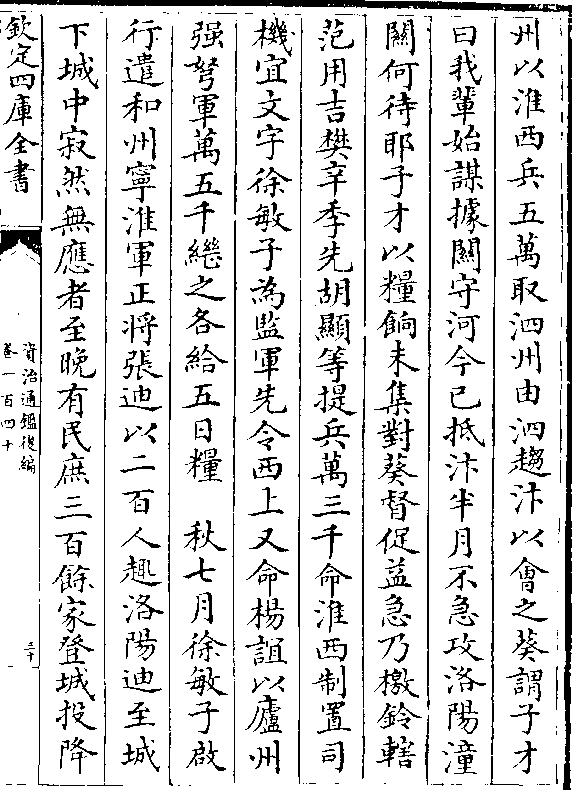 州以淮西兵五萬取泗州由泗趨汴以會之葵謂子才
曰我輩始謀據關守河今已抵汴半月不急攻洛陽潼
關何待耶子才以糧餉未集對葵督促益急乃檄鈐轄
范用吉樊辛季先胡顯等提兵萬三千命淮西制置司
機宜文字徐敏子為監軍先令西上又命楊誼以廬州
强弩軍萬五千繼之各給五日糧　秋七月徐敏子啟
行遣和州寧淮軍正將張迪以二百人趣洛陽迪至城
下城中寂然無應者至晚有民庶三百餘家登城投降
欽定四庫全書
資治通鑑後編
卷一百四十
三十